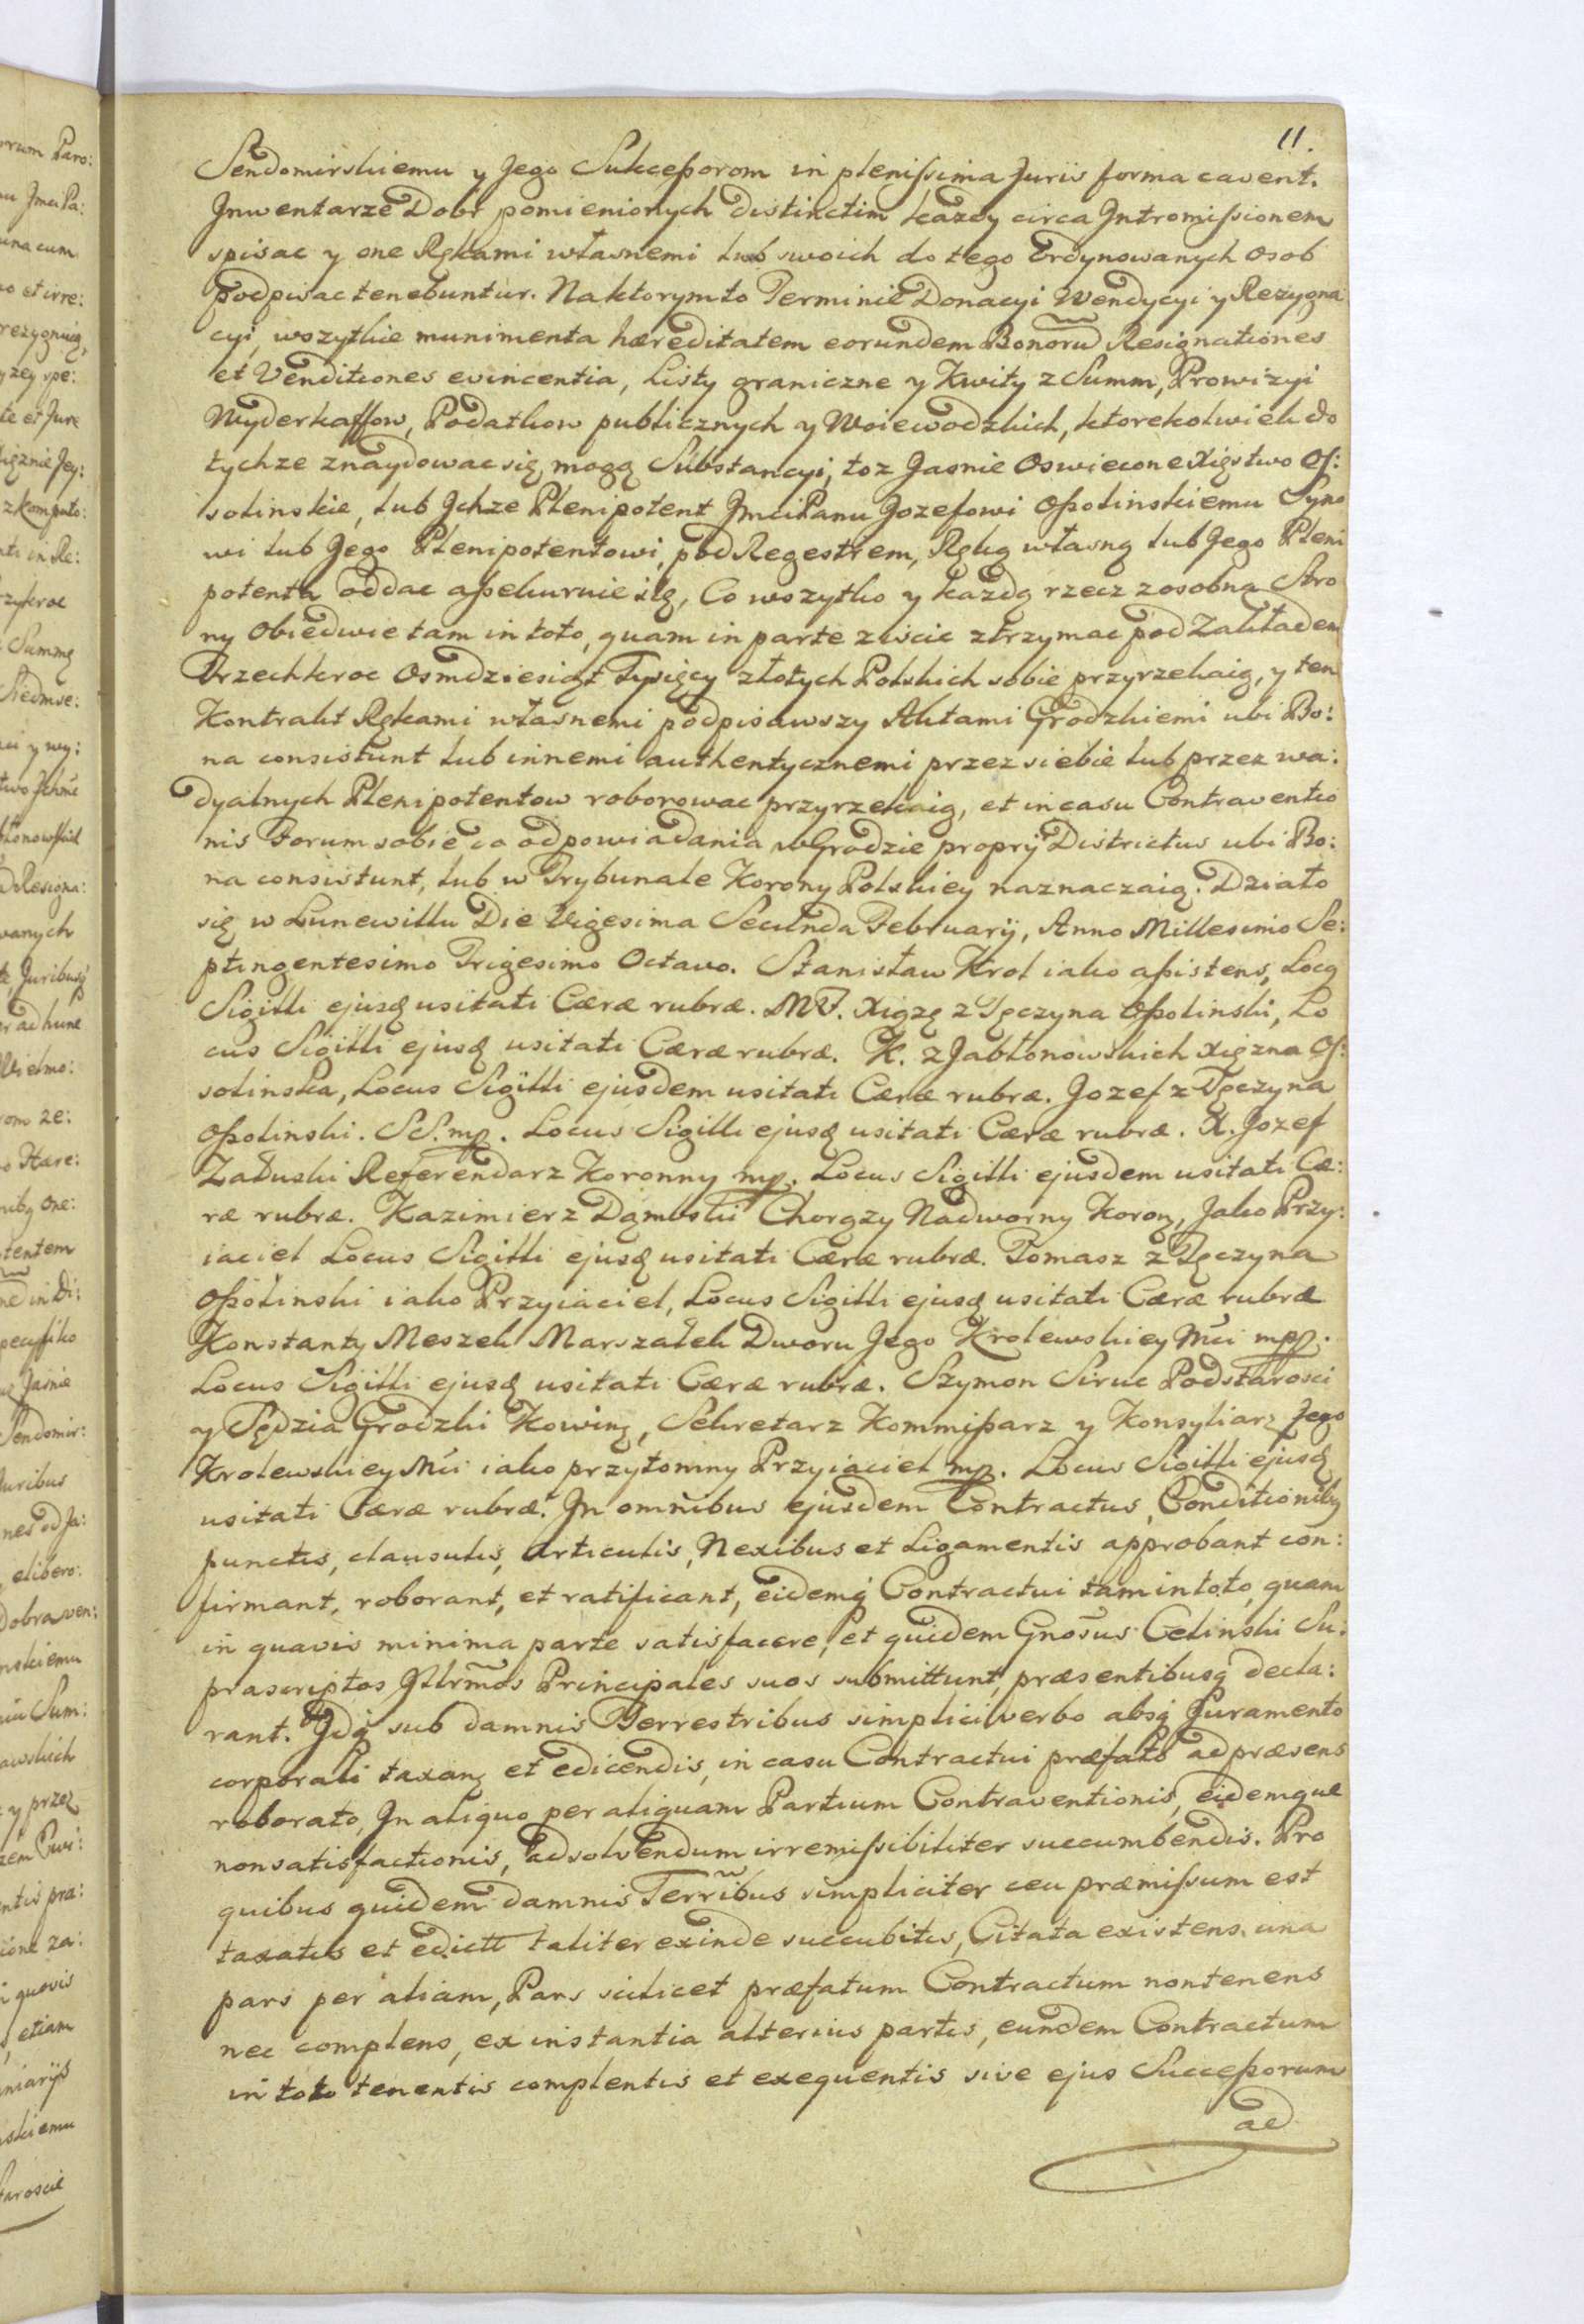 11.
Sendomirskiemu y Jego Sukceßorom in plenißima Juris forma cavent.
Jnwentarze Dobr pomienionych distinctim kazdy circa Jntromißionem
spisac y one Rękami własnemi lub swoich do tego Ordynowanych osob
podpisac tenebuntur. Na ktorymto Terminie Donacyi Wendycyi y Rezygna
cyi, wszytkie munimenta hæreditatem eorundem Bonorũ Resignationes
et Venditiones evincentia, Listy graniczne y Kwity z Summ, Prowizyi
Wyderkaffow, Podatkow publicznych y Woiewodzkich, ktorekolwiek do
tychze znaydowac się mogą Substancyi, toz Jasnie Oswiecone Xięstwo Oſ:
solinskie, lub Jchze Plenipotent JmciPanu Jozefowi Oßolinskiemu Syno
wi lub Jego Plenipotentowi, pod Regestrem, Ręką własną lub Jego Pleni
potenta oddac aßekuruie się, Co wszytko y kazdą rzecz zosobna Stro
ny Obiedwie tam in toto, quam in parte ziscic ztrzymac pod Zakładem
Trzechkroc Osmdziesiąt Tysięcy złotych Polskich sobie przyrzekaią, y ten
Kontrakt Rękami własnemi podpisawszy Aktami Grodzkiemi ubi Bo:
na consistunt lub innemi authentycznemi przez siebie lub przez wa:
dyalnych Plenipotentow roborowac przyrzekaią, et in casu Contraventio
nis Forum sobie do odpowiadania w Grodzie proprij Districtus ubi Bo:
na consistunt, lub w Trybunale Korony Polskiey naznaczaią. Działo
się w Lunewillu Die Vigesima Secunda Februarij, Anno Millesimo Se:
ptingentesimo Trigesimo Octavo. Stanisław Krol iako aßistens, Locq
Sigilli ejusq usitati Cæræ rubræ. MF. Xiąze z Tęczyna Oßolinski, Lo
cus Sigilli ejusq usitati Cæræ rubræ. K. z Jabłonowskich Xięzna Oſ:
solinska, Locus Sigilli ejusdem usitati Cæræ rubræ. Jozef z Tęczyna
Oßolinski. SS. mp. Locus Sigilli ejusq usitati Cæræ rubræ. X. Jozef
Załuski Referendarz Koronny mp. Locus Sigilli ejusdem usitati Cæ:
ræ rubræ. Kazimierz Dąmbski Chorązy Nadworny Koroñ, Jako Przy:
iaciel Locus Sigilli ejusq usitati Cæræ rubræ. Tomasz z Tęczyna
Oßolinski iako Przyiaciel, Locus Sigilli ejusq usitati Cæræ rubræ
Konstanty Meszek Marszałek Dworu Jego Krolewskiey Mci mpp.
Locus Sigilli ejusq usitati Cæræ rubræ. Szymon Siruc Podstarosci
y Sędzia Grodzki Kowinȝ, Sekretarz Kommißarz y Konsyliarz Jego
Krolewskiey Mci iako przytomny Przyiaciel mp. Locus Sigilli ejusq
usitati Cæræ rubræ. Jn omnibus ejusdem Contractus, Conditionibȝ
punctis, clausulis, Articulis, Nexibus et Ligamentis approbant con:
firmant, roborant, et ratificant, eidemq Contractui tam in toto, quam
in quavis minima parte satisfacere, et quidem Gnosus Celinski Su:
prascriptos Jllrmos Principales suos submittunt, præsentibusq decla:
rant. Jdq sub damnis Terrestribus simplici verbo absq Juramento
corporali taxanȝ et edicendis, in casu Contractui præfato ad præsens
roborato, Jn aliquo per aliquam Partium Contraventionis, eidemque
non satisfactionis, ad solvendum irremißibiliter succumbendis. Pro
quibus quidem damnis Terribus simpliciter ceu præmißum est
taxatis et edictt taliter exinde succubitis, Citata existens una
pars per aliam, Pars scilicet præfatum Contractum non tenens
nec complens, ex instantia alterius partis, eundem Contractum
in toto tenentis complentis et exequentis sive ejus Succeßorum
ad